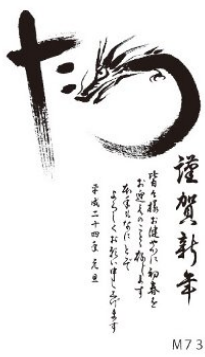 たつ
謹賀新年
皆々様お健やかに初春を
お迎えのことと存じます
本年もなにとぞ
よろしくお願い申し上げます
平成二十四年 元旦
M73